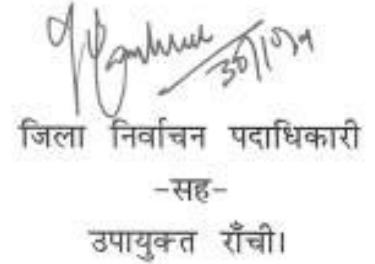 जिला निर्वाचन पदाधिकारी
-सह-
उपायुक्त राँची।